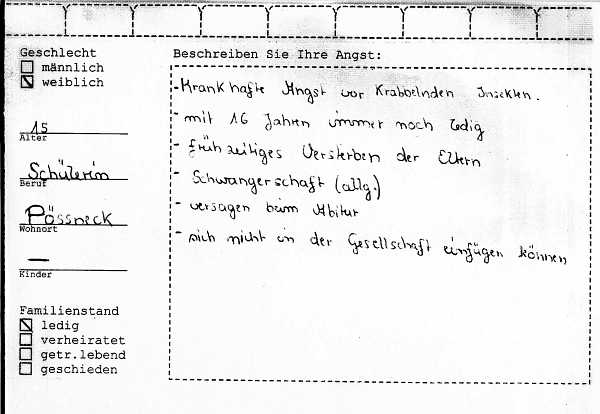 Geschlecht
männlich
weiblich
15
Alter
Schülerin
Beruf
Pössneck
Wohnort
—
Kinder
Familienstand
ledig
verheiratet
getr.lebend
geschieden
Beschreiben Sie Ihre Angst:
- Krankhafte Angst vor Krabbelnden Insekten.
- mit 16 Jahren immer noch ledig
- frühzeitiges Versterben der Eltern
- Schwangerschaft (allg.)
- versagen beim Abitur
- sich nicht in der Gesellschaft einfügen können